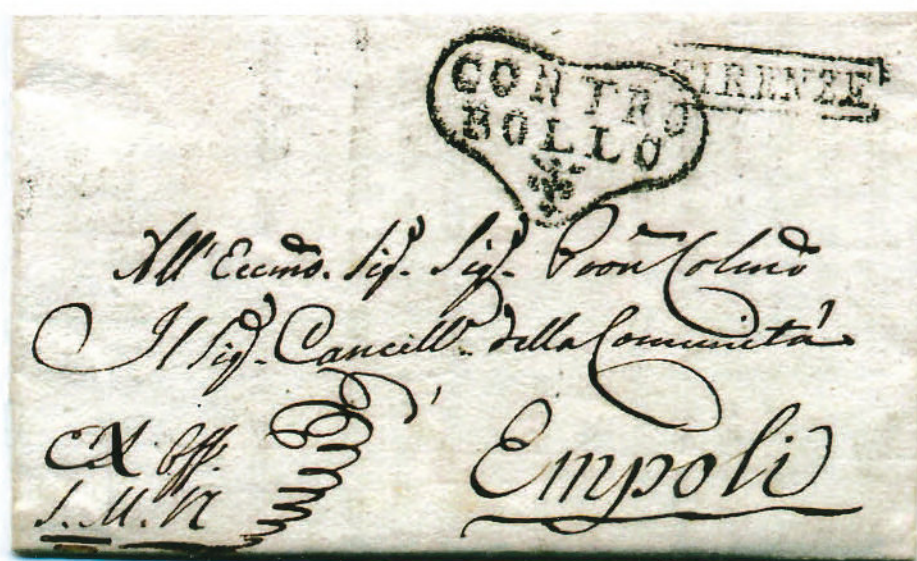 CONTRO
BOLLO
FIRENZE
All' Eccmo. Sig. Sig. Pron Colmo
Il Sig. Cancell. della Comunità
Empoli
EX Off.